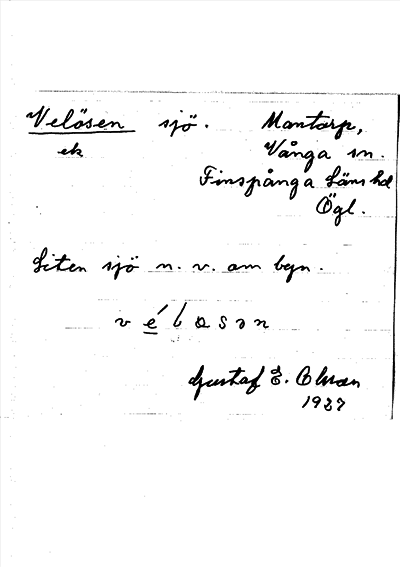 Velösen sjö. Mantorp,
ek Vånga sn.
Finspånga läns hd
Ögl.
Liten sjö n. v. om byn.
Gustaf E. Olsson
1927